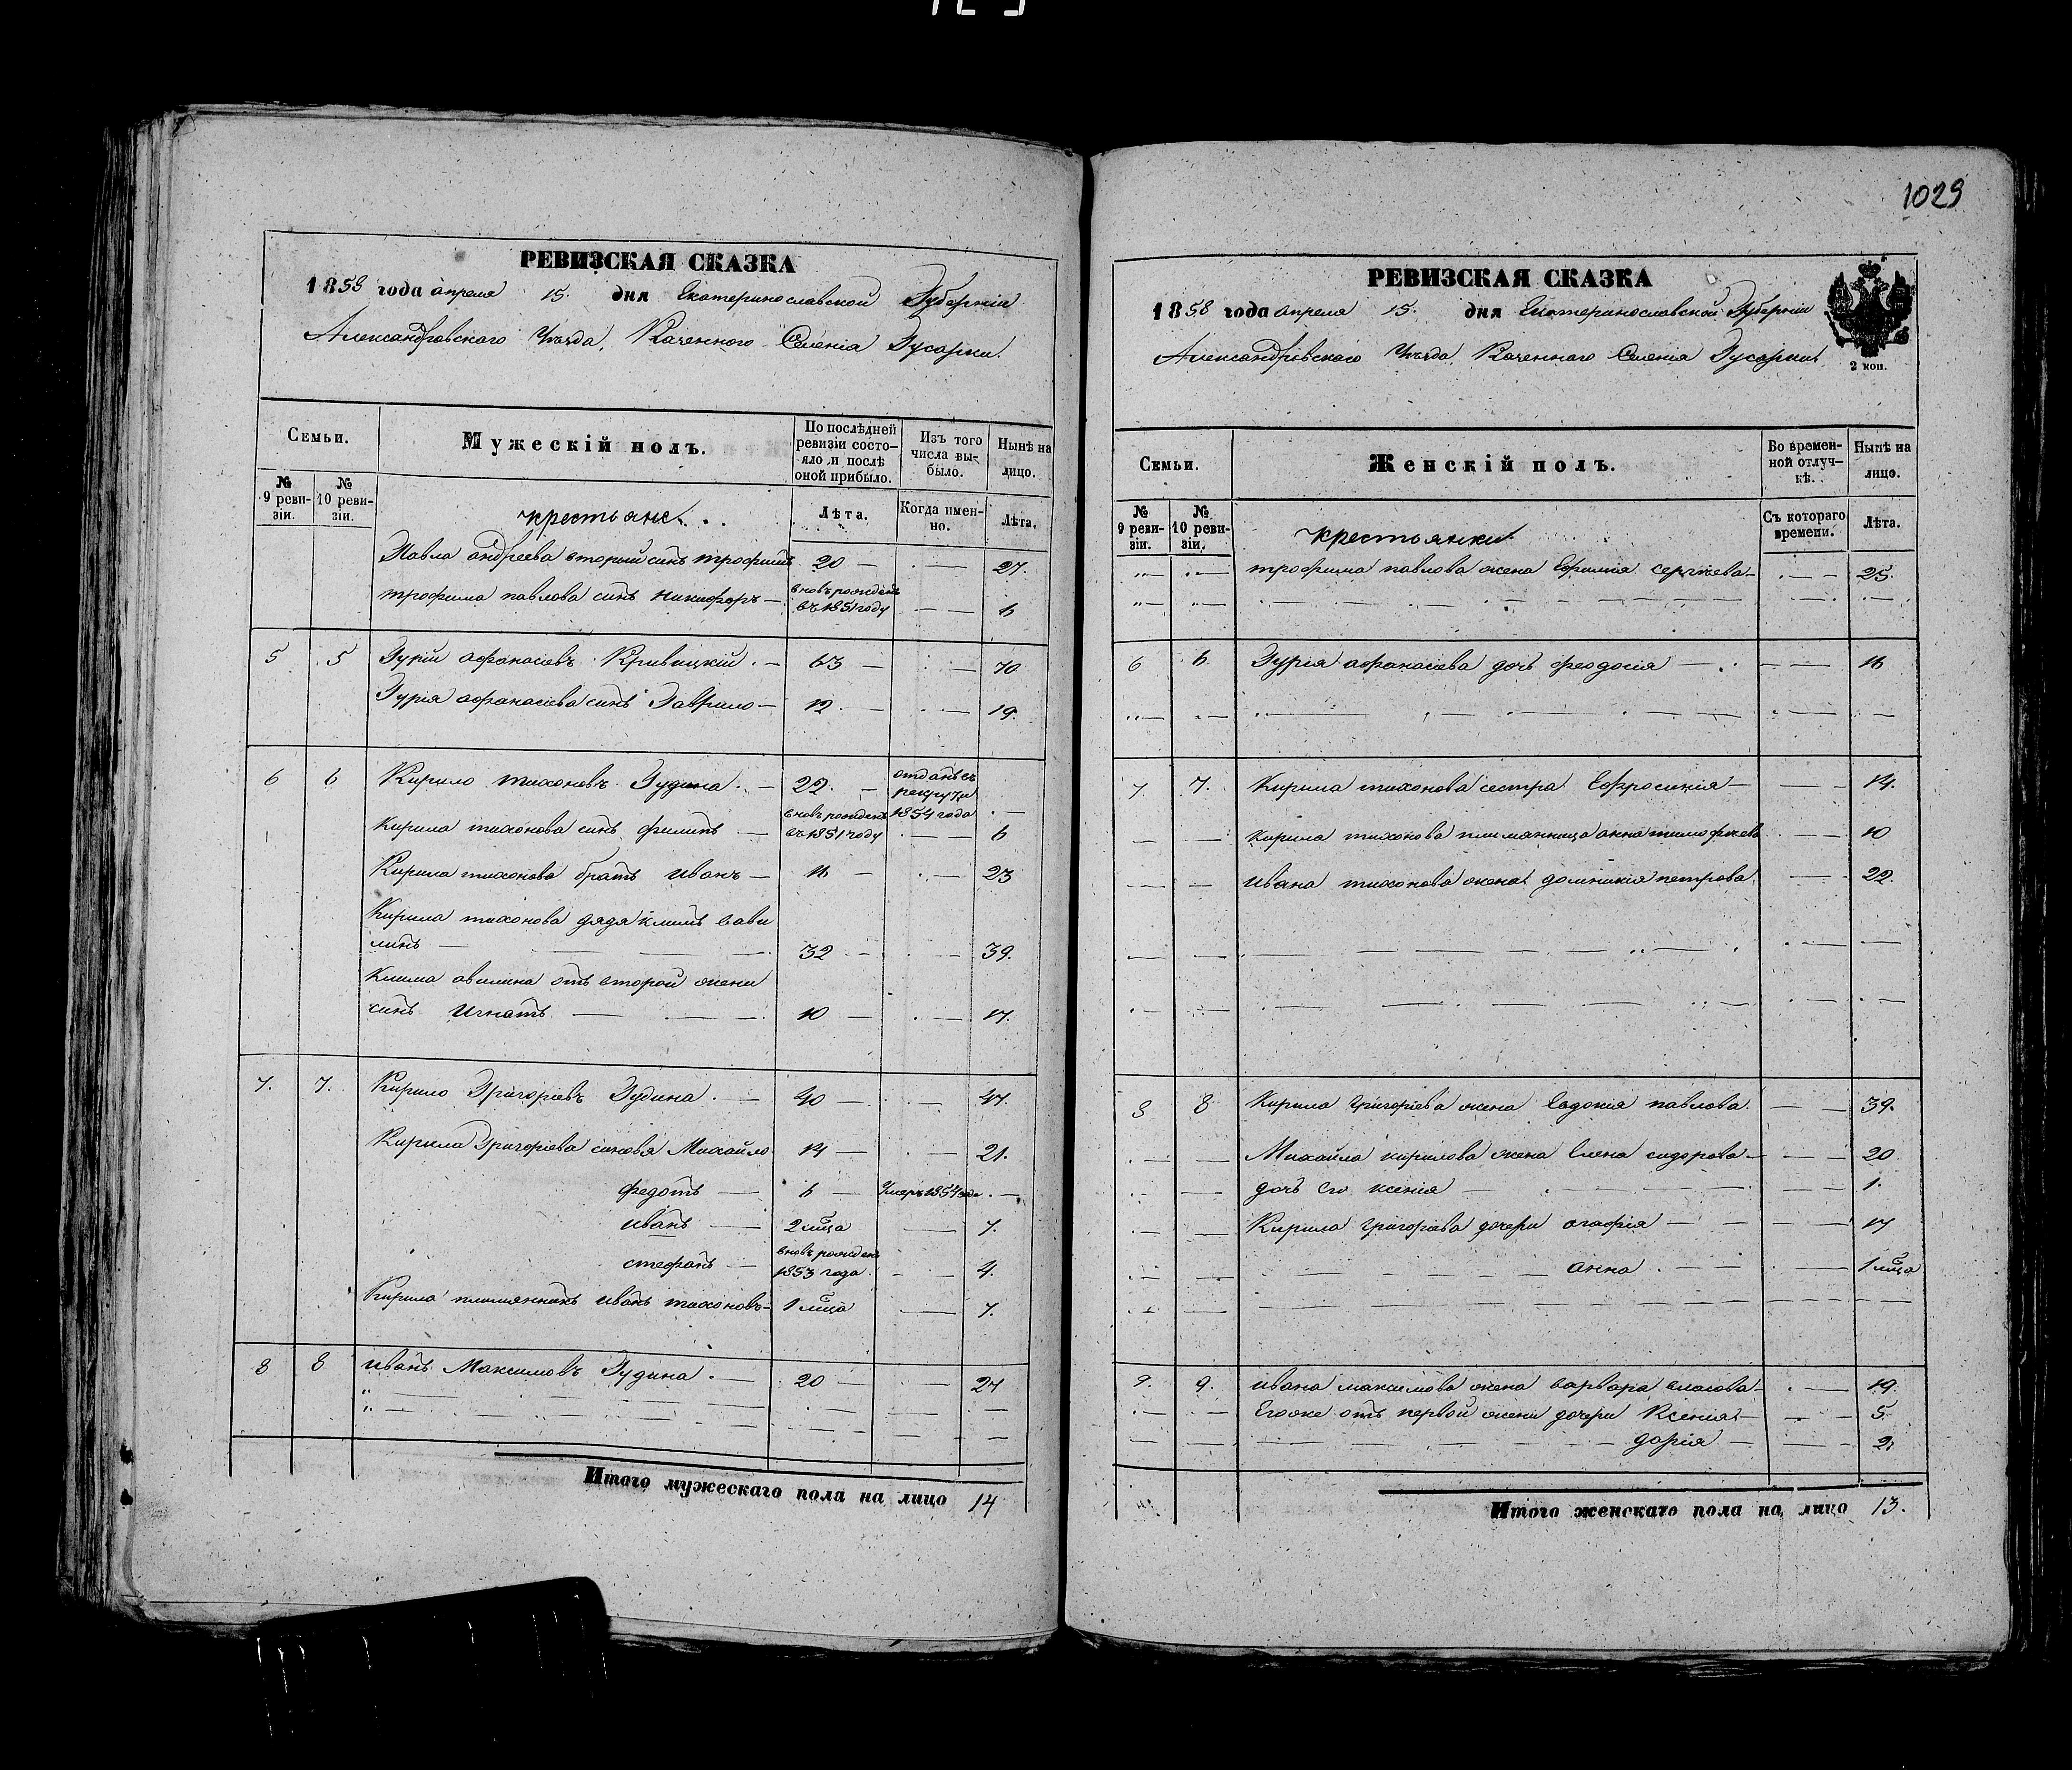 РЕВИЗСКАЯ СКАЗКА
1858 года апреля 15. дня Екатеринославской Губерніи
Александровского Уезда, Казенного Селенія Гусарки.
Семьи.
Мужескій полъ.
По послѣдней ревизіи состо-яло и послѣ оной прибыло.
Изъ того числа вы-было.
Нынѣ на лицо.
№ 9 реви-зіи.
№ 10 реви-зіи.
крестьяне.
Лѣта.
Когда имен-но.
Лѣта.
Павла андреева вторый синъ трофимъ 20 — . — 27.
трофима павлова синъ никифоръ — вновь рожденъ въ 1851 году — — 6
5 5 Гурій афанасіевъ Кривицкій . — 63 — . — 70
Гурія афанасіева синъ Гаврило — 12. — . — 19.
6 6 Кирило тихоновъ Гудина . — 22. — отданъ въ рекруты 1854 года . —
Кирила тихонова синъ филипъ . — вновь рожденъ въ 1851 году . — 6
Кирила тихонова братъ иванъ — 16 — . — 23
Кирила тихонова дядя климъ вави
линъ — — — . 32 . — . — 39.
Клима авилина отъ второй жени
синъ Игнатъ — . — . 10 — . — 17.
7. 7. Кирило Григоріевъ Гудина . — 40 — . — 47.
Кирила Григоріева синовя Михайло 14 — . — 21.
федотъ — 6 — Умеръ 1854 года . —
иванъ — 2 мѣца — 7.
стефанъ — вновь рожденъ 1853 года . — 4.
Кирила племянникъ иванъ тихоновъ — 1 мѣца — 7.
8 8 иванъ Максимовъ Гудина . — 20 — . — 27
Итого мужескаго пола на лицо 14
1029
РЕВИЗСКАЯ СКАЗКА
1858 года апреля 15. дня Екатеринославской Губерніи
Александровскаго Уезда, Казеннаго Селенія Гусарки.
2 коп.
Семьи.
Женскій полъ.
Во времен-ной отлуч-кѣ.
Нынѣ на лицо.
№ 9 реви-зіи.
№ 10 реви-зіи.
крестьянки.
Съ котораго времени.
Лѣта.
„— „— трофима павлова жена Ефимія сергѣева — . — — 25.
6 6 Гурія афанасіева дочь феодосія — . — — 16
7. 7. Кирила тихонова сестра Ефросинія — — — 14.
— . — кирила тихонова племянница анна тимофѣева . — — 10
— — — ивана тихонова жена домникія петрова — — 22.
8 8 Кирила григоріева жена Евдокія павлова. — — 39.
. — — Михайла кирилова жена Елена сидорова — — — 20
. — — дочь его ксенія — . — — — 1.
. — — Кирила григоріева дочери агафія — — — 17
. — — — — анна . — — . — 1 мѣца
9. 9. ивана максимова жена варвара власова — . — 19.
. — — Егоже отъ первой жени дочери Ксенія — . — — 5
— — — — дарія — — — 2.
Итого женскаго пола на лицо 13.